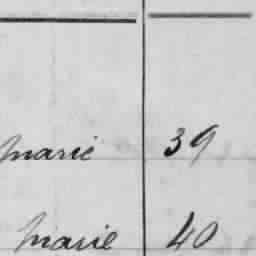 marié 39
marié 40